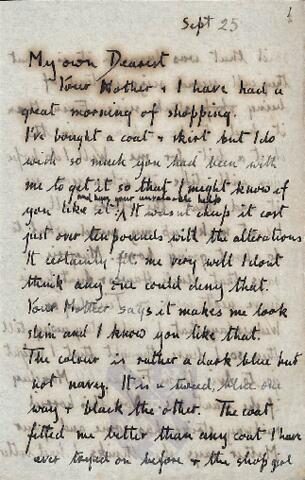 1
Sept 25
My own Dearest
Your Mother & I have had a
great morning of shopping.
I've bought a coat & skirt but I do
wish so much you had been with
me to get it so that I might know if
and have your invaluable help
you like it; It wasn't cheap it cost
just over ten pounds with the alterations
It certainly fits me very well I dont
think any one could deny that.
Your Mother says it makes me look
slim and I know you like that.
The colour is rather a dark blue but
not navy. It is a tweed, blue one
way & black the other. The coat
fitted me better than any coat I have
ever tryed on before & the shop girl